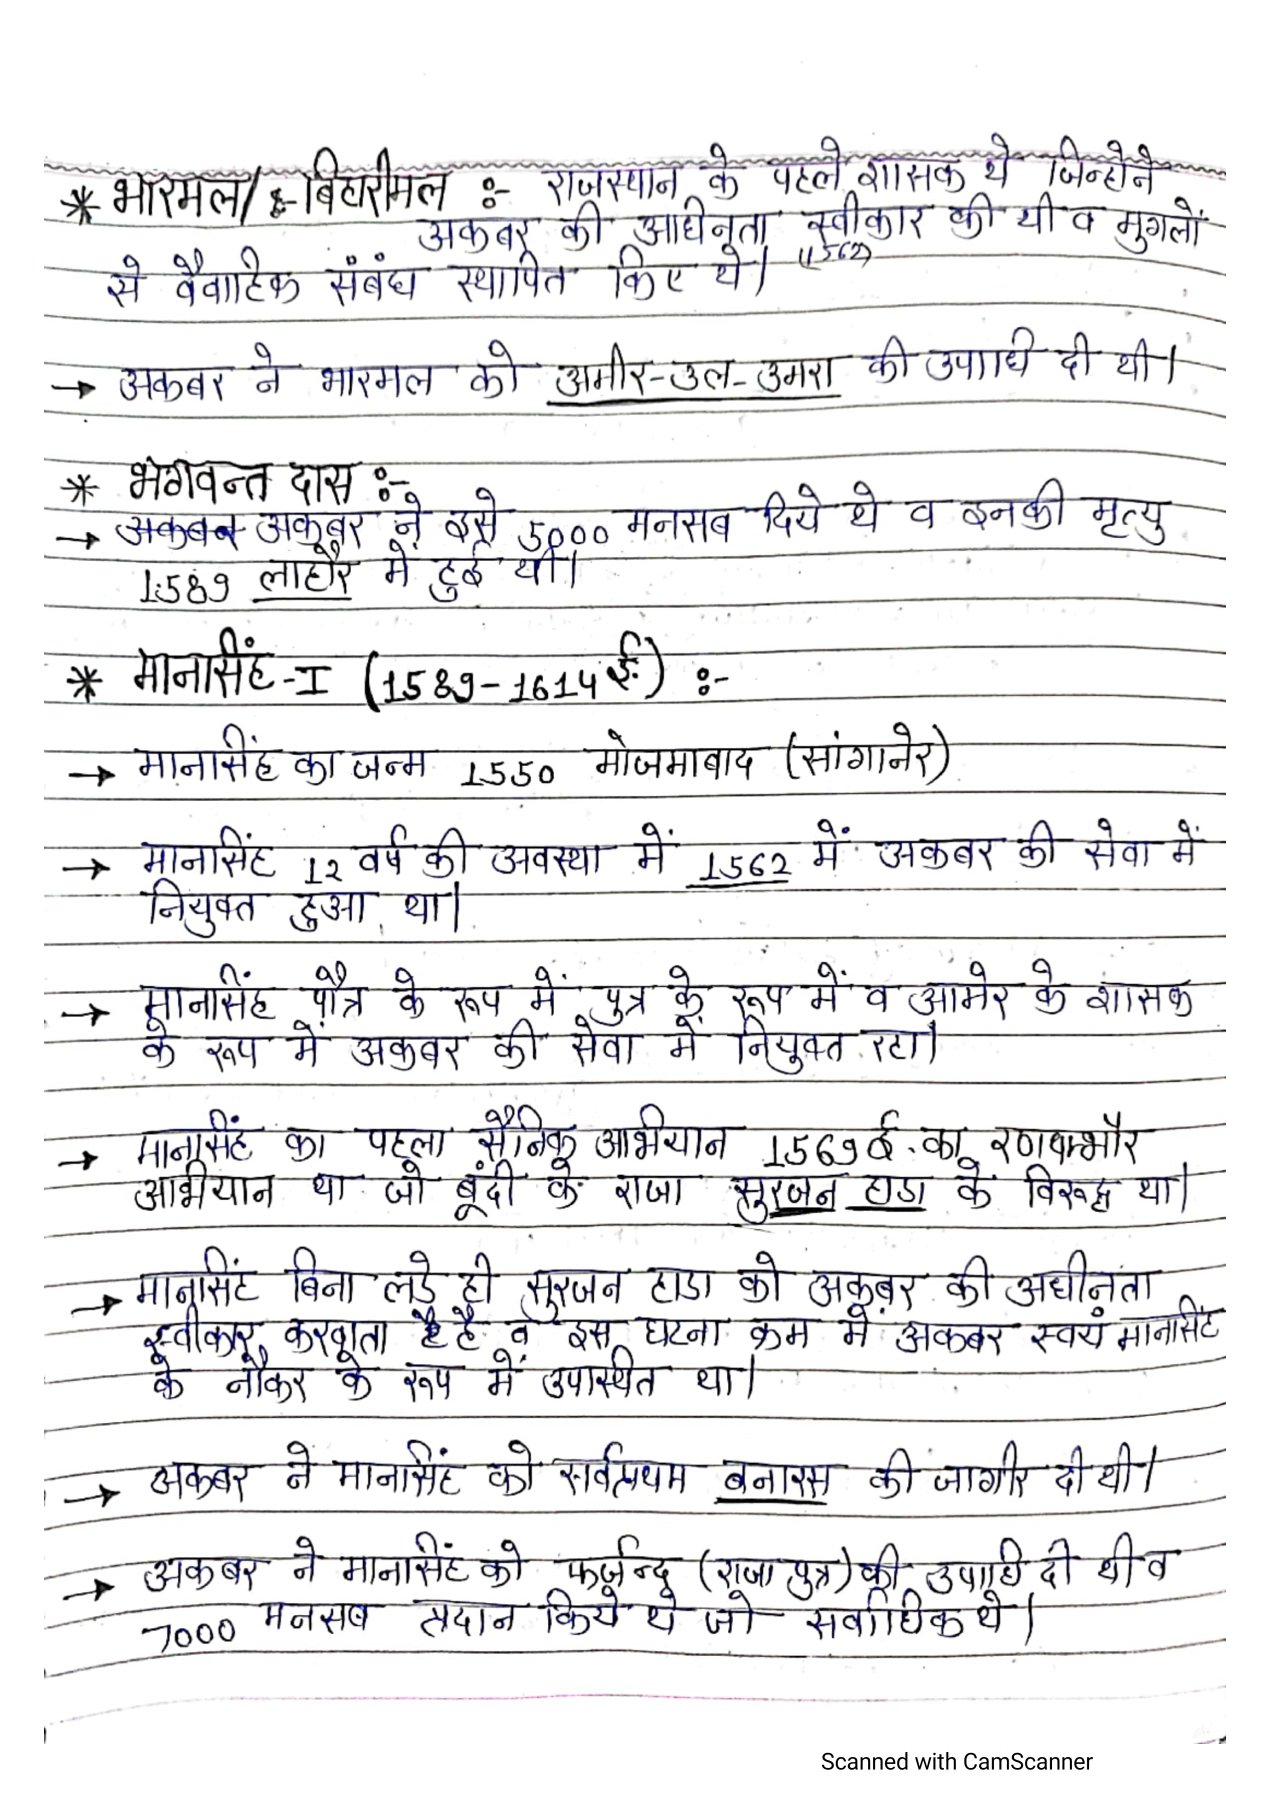 * भारमल/ बिहारीमल :- राजस्थान के पहले शासक थे जिन्होने
अकबर की आधिनता स्वीकार की थी व मुगलों
(1562)
से वैवाहिक संबंध स्थापित किए थे।
→ अकबर ने भारमल को अमीर-उल-उमरा की उपाधि दी थी।
* भगवन्त दास :-
→ अकबर अकबर ने इसे 5000 मनसब दिये थे व इनकी मृत्यु
1589 लाहौर मे हुई थी।
* मानसिंह-I (1589-1614ई.) :-
→ मानसिंह का जन्म 1550 मोजमाबाद (सांगानेर)
→ मानसिंह 12 वर्ष की अवस्था में 1562 में अकबर की सेवा में
नियुक्त हुआ था।
→ मानसिंह पौत्र के रूप में पुत्र के रूप में व आमेर के शासक
के रूप में अकबर की सेवा में नियुक्त रहा।
→ मानसिंह का पहला सैनिक अभियान 1569ई. का रणथम्भौर
अभियान था जो बूंदी के राजा सुरजन हाडा के विरूद्ध था।
→ मानसिंह बिना लडे ही सुरजन हाडा को अकबर की अधीनता
स्वीकार करवाता है है व इस घटना क्रम में अकबर स्वयं मानसिंह
के नौकर के रूप में उपस्थित था।
→ अकबर ने मानसिंह को सर्वप्रथम बनारस की जागीर दी थी।
→ अकबर ने मानसिंह को फर्जन्द (राजा पुत्र) की उपाधि दी थी व
7000 मनसब प्रदान किये थे जो सर्वाधिक थे।
Scanned with CamScanner